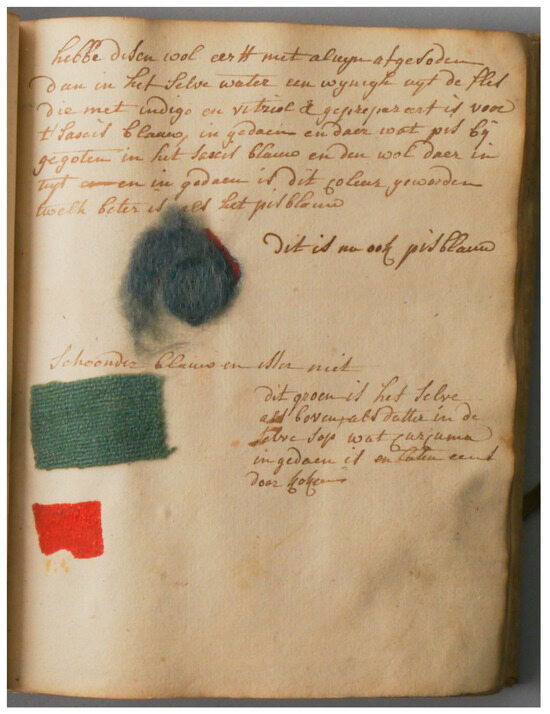 hebbe desen wol eerst met aluyn afgesoden
dan in het selve water een wynigh uyt de fles
die met indigo en vitriol geprepareert is voor
t Saxcis blauw, in gedaen en daer wat pis bÿ
gegoten in het Saxcis blauw en den wol daer in
en in gedaen is dit coleur geworden
twelk beter is als het pisblauw
dit is nu ook pisblauw
Schoonder blauw en isser niet
dit groen is het selve
als boven, als datter in de
selve sop wat curcuma
in gedaen is en laten eens
door koken